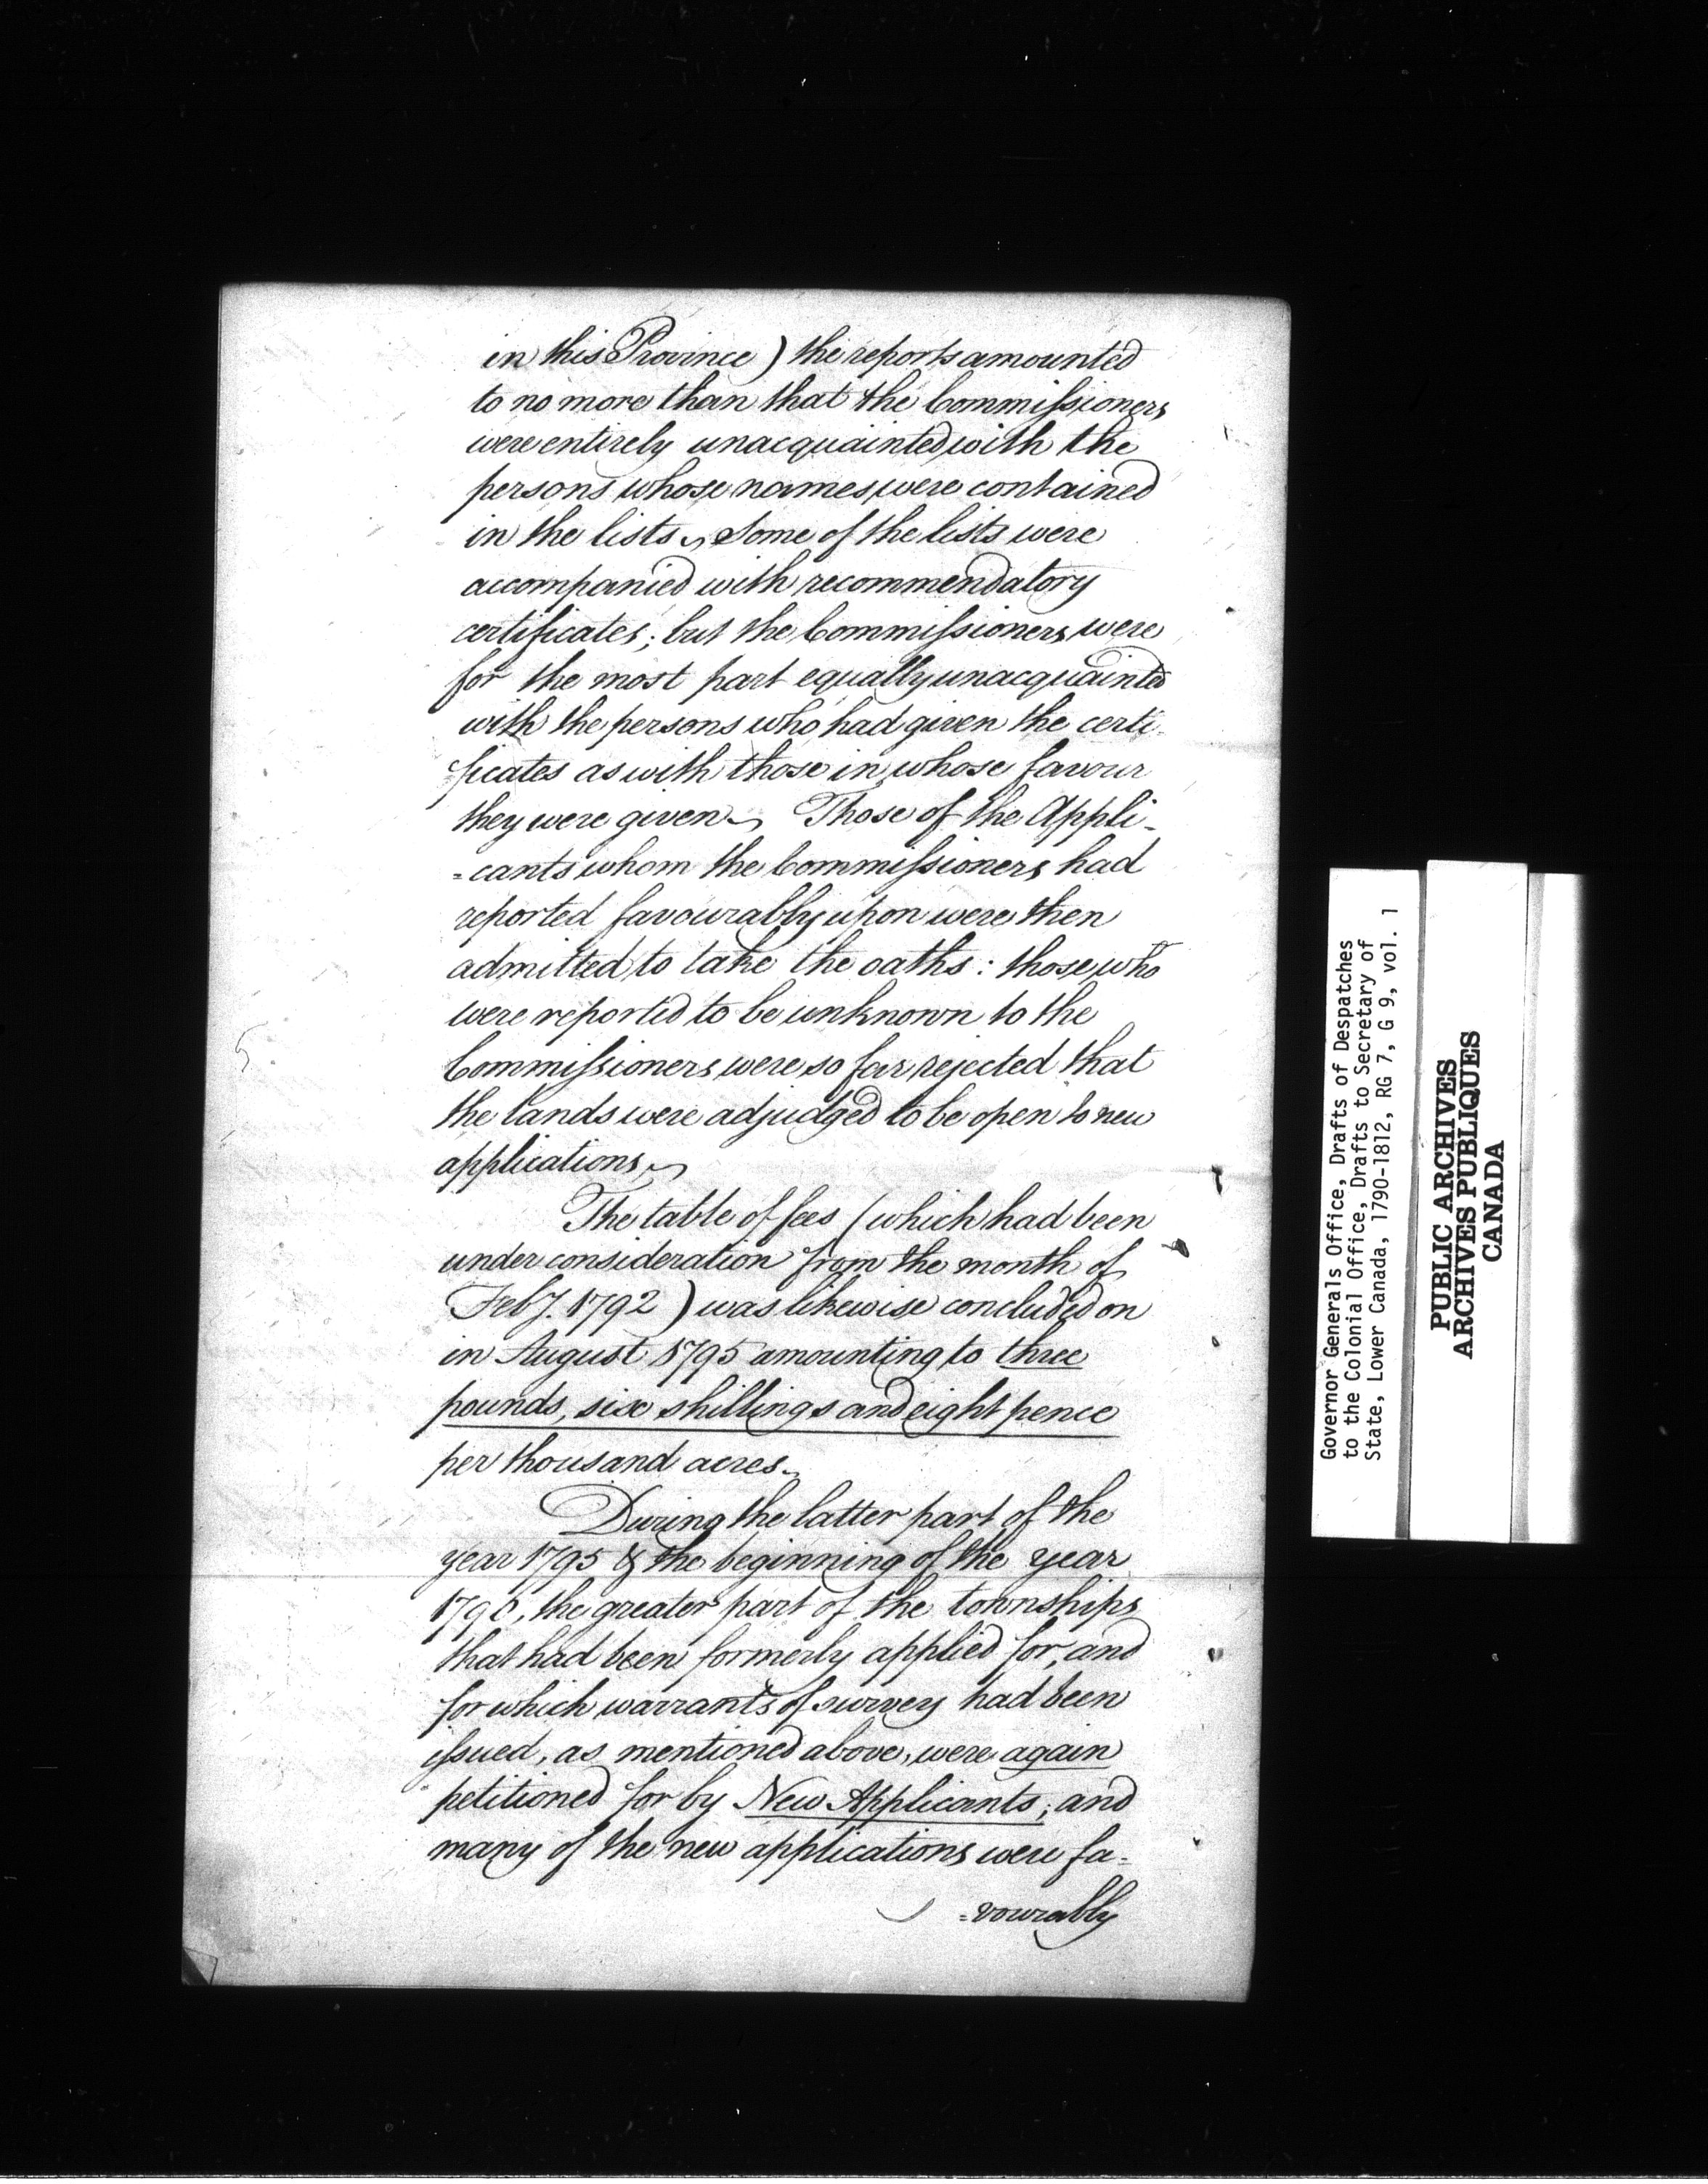 in this Province) the reports amounted
to no more than that the Commissioners
were entirely unacquainted with the
persons whose names were contained
in the lists ~ Some of the lists were
accompanied with recommendatory
certificates; but the Commissioners were
for the most part equally unacquainted
with the persons who had given the certi-
ficates as with those in whose favour
they were given ~ Those of the Appli-
=cants whom the Commissioners had
reported favourably upon were then
admitted to take the oaths: those who
were reported to be unknown to the
Commissioners were so far rejected that
the lands were adjudged to be open to new
applications ~
The table of fees (which had been
under consideration from the month of
Feby. 1792) was likewise concluded on
in August 1795 amounting to three
pounds, six shillings and eight pence
per thousand acres ~
During the latter part of the
year 1795 & the beginning of the year
1796, the greater part of the townships
that had been formerly applied for, and
for which warrants of survey had been
issued, as mentioned above, were again
petitioned for by New Applicants; and
many of the new applications were fa=
=vourably
Governor Generals Office, Drafts of Despatches
to the Colonial Office, Drafts to Secretary of
State, Lower Canada, 1790-1812, RG 7, G 9, vol. 1
PUBLIC ARCHIVES
ARCHIVES PUBLIQUES
CANADA